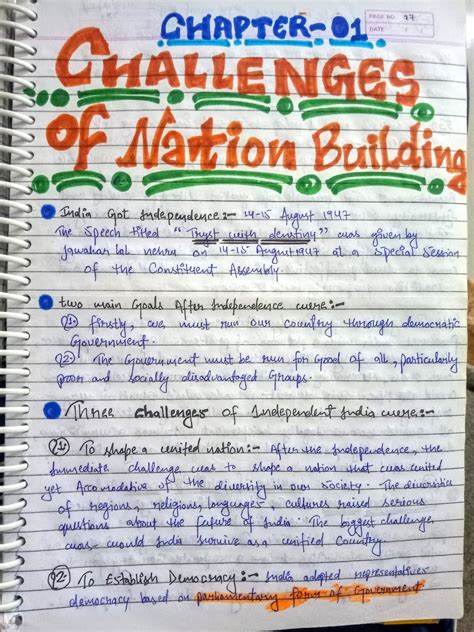 PAGE NO. 27
DATE
CHAPTER-01
CHALLENGES
of Nation Building
India Got Independence:- 14-15 August 1947
The Speech titled "Tryst with destiny" was given by
Jawahar lal nehru on 14-15 August 1947 at a Special Session
of the Constituent Assembly.
two main Goals After Independence were:-
Q1- firstly, we must run our country through democratic
Government.
Q2- The Government must be run for Good of all, particularly
poor and socially disadvantaged Groups.
Three Challenges of Independent India were:-
Q1) To shape a united nation:- After the Independence, the
Immediate challenge was to shape a nation that was united
yet Accomodative of the diversity in our society. The diversities
of regions, religions, languages, cultures raised serious
questions about the future of India. The biggest challenge,
was- would India survive as a unified Country.
Q2) To Establish Democracy:- India adopted representative
democracy based on parliamentary form of Government